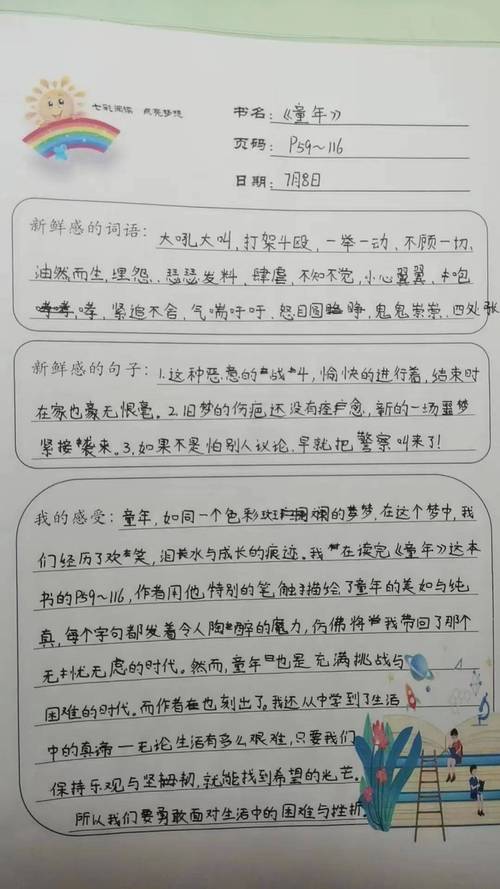 七彩阅读 点亮梦想
书名：《童年》
页码：P59～116
日期：7月8日
新鲜感的词语：大吼大叫，打架斗殴，一举一动，不顾一切，
油然而生，埋怨，瑟瑟发料，肆虐，不知不觉，小心翼翼，咆
哮，紧追不舍，气喘吁吁，怒目圆睁，鬼鬼祟祟，四处张
新鲜感的句子：1.这种恶意的战斗，愉快的进行着，结束时
在家也豪无恨毫。2.旧梦的伤疤还没有痊愈，新的一场噩梦
紧接袭来。3.如果不是怕别人议论，早就把警察叫来了！
我的感受：童年，如同一个色彩斑斓的梦，在这个梦中，我
们经历了欢笑，泪水与成长的痕迹。我在读完《童年》这本
书的P59～116，作者用他特别的笔触描绘了童年的美如与纯
真，每个字句都发着令人陶醉的魔力，仿佛将我带回了那个
无忧无虑的时代。然而，童年也是充满挑战与
困难的时代。而作者也刻出了。我还从中学到了生活
中的真谛—无论生活有多么艰难，只要我们
保持乐观与坚韧，就能找到希望的光芒。
所以我们要勇敢面对生活中的困难与挫折